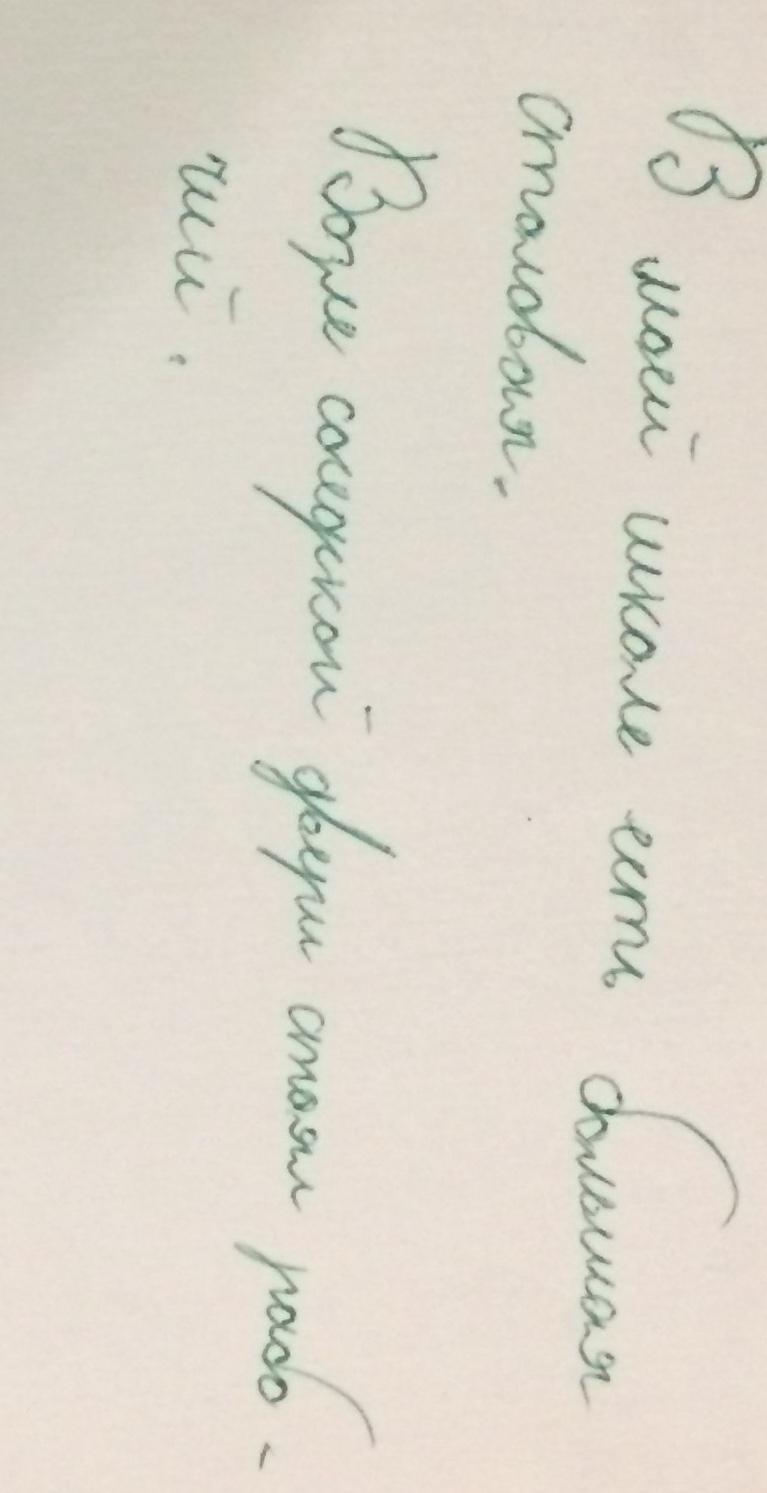 В моей школе есть большая
столовая.
Возле соседской двери стоял рабо-
чий.